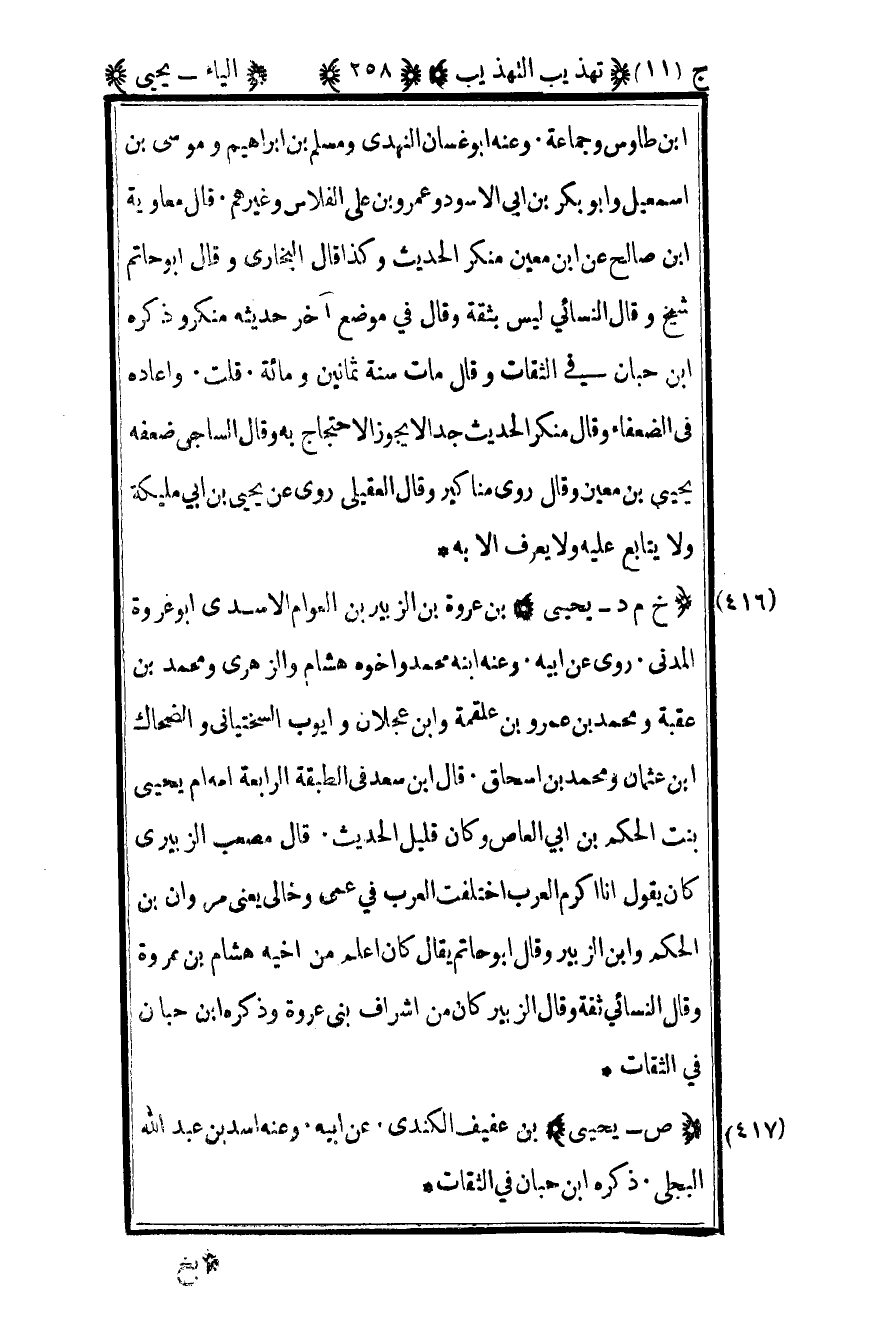 ج (١١) ﴿ تهذيب التهذيب ﴾ ﴿ ٢٥٨ ﴾ ﴿ الياء ــ يحيى ﴾
ابن طاوس وجماعة ٠ وعنه ابوغسان النهدى ومسلم بن ابراهيم و موسى بن
اسمعيل وابوبكر بن ابي الاسود وعمرو بن على الفلاس وغيرهم ٠ قال معاوية
ابن صالح عن ابن معين منكر الحديث وكذا قال البخارى و قال ابوحاتم
شيخ و قال النسائي ليس بثقة وقال في موضع آخر حديثه منكر و ذكره
ابن حبان في الثقات و قال مات سنة ثمانين و مائة ٠ قلت ٠ واعاده
فى الضعفاء وقال منكر الحديث جدا لايجوز الاحتجاج به وقال الساجى ضعفه
يحيى بن معين وقال روى مناكير وقال العقيلى روى عن يحيى بن ابي مليكة
ولا يتابع عليه ولا يعرف الا به *
(٤١٦) ﴿ خ م د ــ يحيى ﴾ بن عروة بن الزبير بن العوام الاسدى ابوعروة
المدنى ٠ روى عن ابيه ٠ وعنه ابنه محمد واخوه هشام والزهرى ومحمد بن
عقبة و محمد بن عمرو بن علقمة وابن عجلان و ايوب السختيانى و الضحاك
ابن عثمان ومحمد بن اسحاق ٠ قال ابن سعد فى الطبقة الرابعة امه ام يحيى
بنت الحكم بن ابي العاص وكان قليل الحديث ٠ قال مصعب الزبيرى
كان يقول انا اكرم العرب اختلفت العرب في عمى وخالى يعنى مروان بن
الحكم وابن الزبير وقال ابوحاتم يقال كان اعلم من اخيه هشام بن عروة
وقال النسائي ثقة وقال الزبير كان من اشراف بنى عروة وذكره ابن حبان
في الثقات *
(٤١٧) ﴿ ص ــ يحيى ﴾ بن عفيف الكندى ٠ عن ابيه ٠ وعنه اسد بن عبد الله
البجلى ٠ ذكره ابن حبان في الثقات *